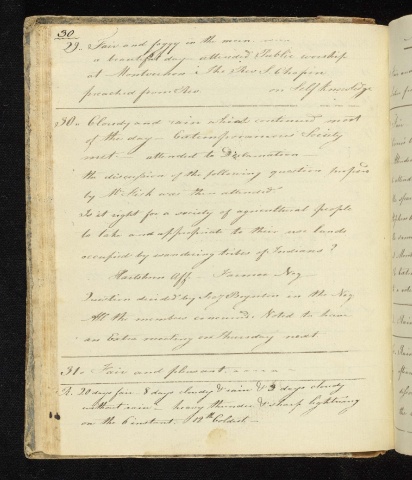 30
29. Fair and foggy in the morn
a beautiful day attended Public worship
at The Rev. J. Chapin
preached from on Self knowledge
30. Cloudy and rain which continued most
of the day Extemporaneous Society
met attended to Declamation
the discussion of the following question
by Mr. was then attended
Is it right for a society of agricultural people
to take and appropriate to their use lands
occupied by wandering tribes of Indians?
Aff. Farmer Neg
Question decided by Boynton in the Neg
All the members Voted to have
an Extra meeting on Thursday next
31. Fair and pleasant
R. 20 days fair 8 days cloudy & rain & 3 days cloudy
without rain heavy thunder & sharp lightning
on the 6 instant. 12th Coldest